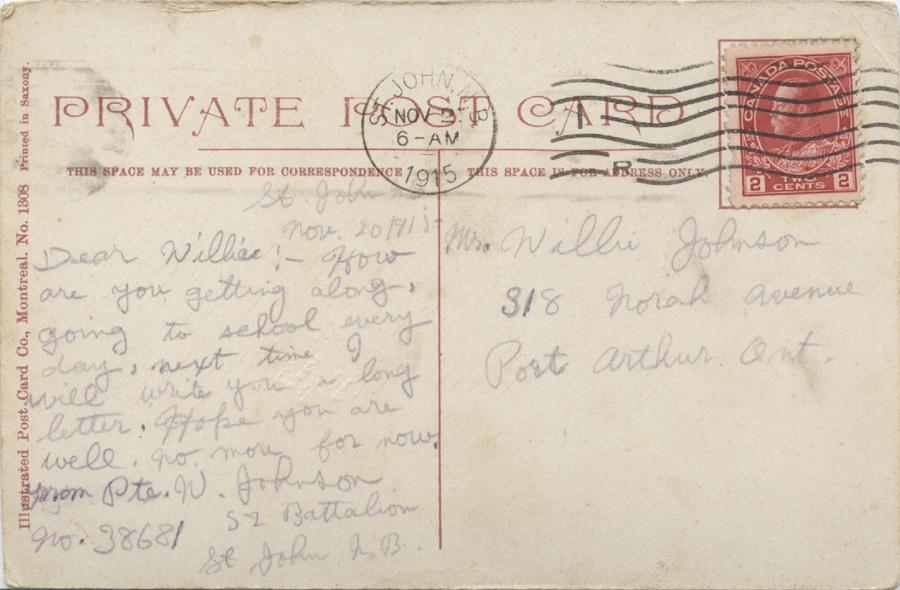 PRIVATE POST CARD
THIS SPACE MAY BE USED FOR CORRESPONDENCE
THIS SPACE IS FOR ADDRESS ONLY
ST. JOHN, N.B.
NOV
6-AM
1915
CANADA POSTAGE
2 TWO CENTS 2
Illustrated Post Card Co., Montreal. No. 1308 Printed in Saxony.
St. John
Nov. 20 1915
Dear Willie :- How
are you getting along,
going to school every
day, next time I
will write you a long
letter. Hope you are
well. no more for now.
From Pte. W. Johnson
No. 38681 52 Battalion
St John N.B.
Mr. Willie Johnson
318 Norah Avenue
Port Arthur Ont.